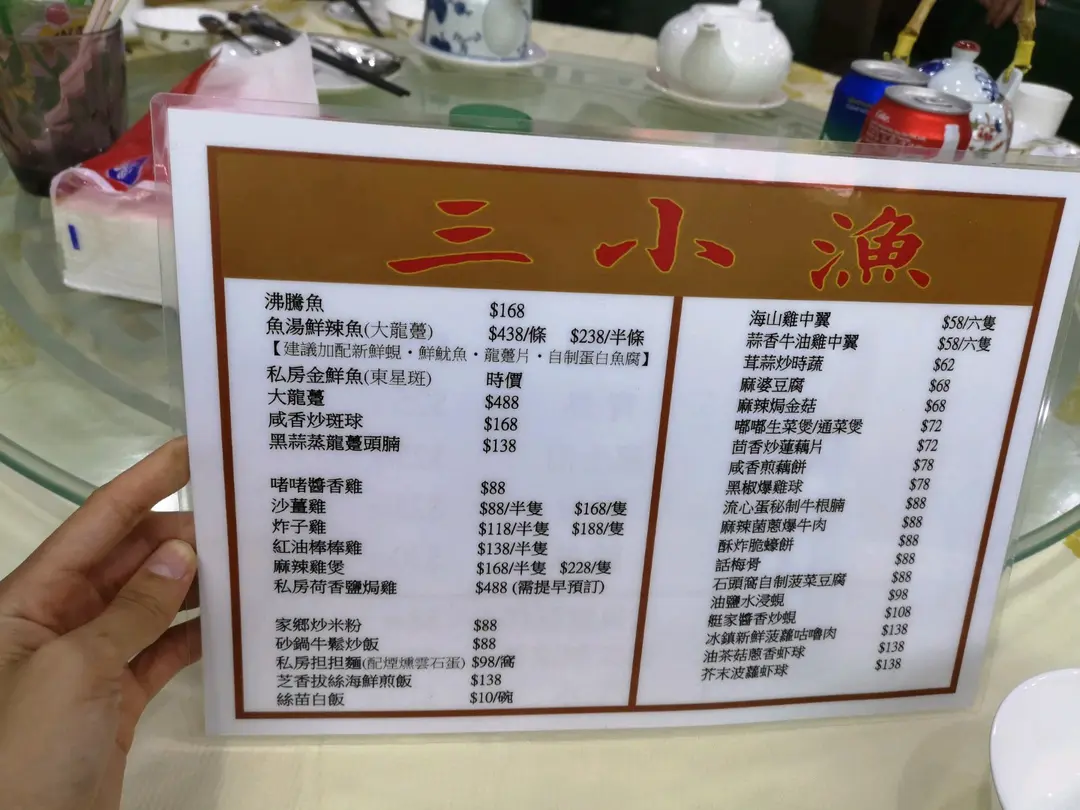 三小漁
沸騰魚 $168
魚湯鮮辣魚(大龍躉) $438/條 $238/半條
【建議加配新鮮蜆・鮮魷魚・龍躉片・自制蛋白魚腐】
私房金鮮魚(東星斑) 時價
大龍躉 $488
咸香炒斑球 $168
黑蒜蒸龍躉頭腩 $138
啫啫醬香雞 $88
沙薑雞 $88/半隻 $168/隻
炸子雞 $118/半隻 $188/隻
紅油棒棒雞 $138/半隻
麻辣雞煲 $168/半隻 $228/隻
私房荷香鹽焗雞 $488 (需提早預訂)
家鄉炒米粉 $88
砂鍋牛鬆炒飯 $88
私房担担麵(配煙燻雲石蛋) $98/窩
芝香拔絲海鮮煎飯 $138
絲苗白飯 $10/碗
海山雞中翼 $58/六隻
蒜香牛油雞中翼 $58/六隻
茸蒜炒時蔬 $62
麻婆豆腐 $68
麻辣焗金菇 $68
嘟嘟生菜煲/通菜煲 $72
茴香炒蓮藕片 $72
咸香煎藕餅 $78
黑椒爆雞球 $78
流心蛋秘制牛根腩 $88
麻辣菌蔥爆牛肉 $88
酥炸脆蠔餅 $88
話梅骨 $88
石頭窩自制菠菜豆腐 $88
油鹽水浸蜆 $98
艇家醬香炒蜆 $108
冰鎮新鮮菠蘿咕嚕肉 $138
油茶菇蔥香虾球 $138
芥末波蘿虾球 $138